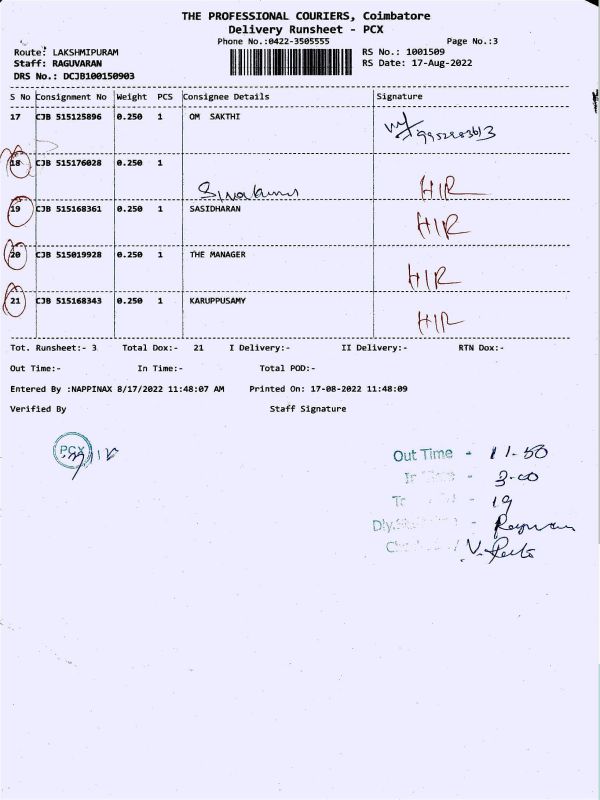 THE PROFESSIONAL COURIERS, Coimbatore
Delivery Runsheet - PCX
Phone No.:0422-3505555 Page No.:3
Route: LAKSHMIPURAM RS No.: 1001509
Staff: RAGUVARAN RS Date: 17-Aug-2022
DRS No.: DCJB100150903
S No Consignment No Weight PCS Consignee Details Signature
17 CJB 515125896 0.250 1 OM SAKTHI
18 CJB 515176028 0.250 1
HIR
19 CJB 515168361 0.250 1 SASIDHARAN
HIR
20 CJB 515019928 0.250 1 THE MANAGER
HIR
21 CJB 515168343 0.250 1 KARUPPUSAMY
HIR
Tot. Runsheet:- 3 Total Dox:- 21 I Delivery:- II Delivery:- RTN Dox:-
Out Time:- In Time:- Total POD:-
Entered By :NAPPINAX 8/17/2022 11:48:07 AM Printed On: 17-08-2022 11:48:09
Verified By Staff Signature
PCX
Out Time - 11-50
- 3-00
- 19